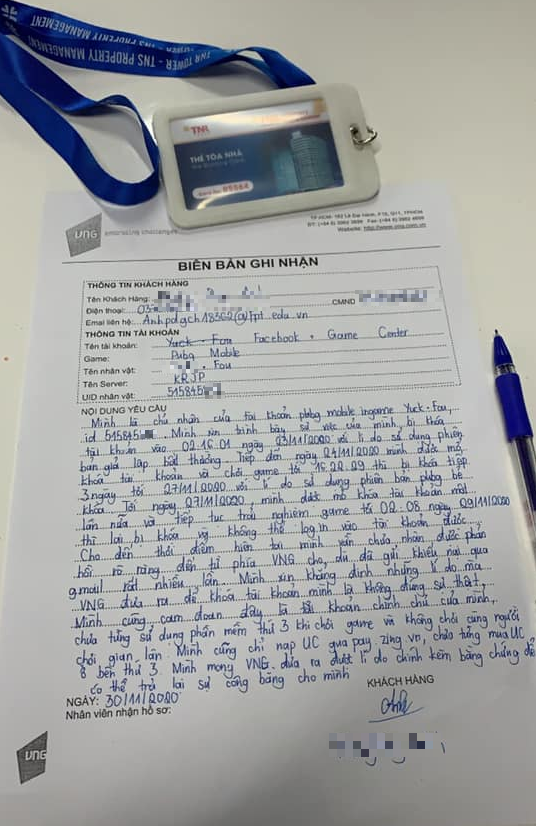 TNR TOWER - TNS PROPERTY MANAGEMENT
TNR TOWER - TNS PROPERTY MANAGEMENT
TNR
THẺ TÒA NHÀ
05564
VNG
embracing challenges
TP HCM: 182 Lê Đại Hành, P.15, Q11, TPHCM
Website: http://www.vng.com.vn
BIÊN BẢN GHI NHẬN
THÔNG TIN KHÁCH HÀNG
Tên Khách Hàng:
CMND
Điện thoại: 03
Emai liên hệ: Anhpdgch18362@fpt.edu.vn
THÔNG TIN TÀI KHOẢN
Tên tài khoản: Yuck - Fou Facebook + Game Center
Game: Pubg Mobile
Tên nhân vật: . Fou
Tên Server: KRJP
UID nhân vật: 515845
NỘI DUNG YÊU CẦU
Mình là chủ nhân của tài khoản pubg mobile ingame Yuck-Fou,
id 515845 . Mình xin trình bày sự việc của mình, bị khóa
tài khoản vào 02.16.01 ngày 23/11/2020 với lí do sử dụng phiên
bản giả lập bất thường. Tiếp đến ngày 24/11/2020 mình được mở
khóa tài khoản và chơi game tới 15.22.29 thì bị khóa tiếp
3 ngày tới 27/11/2020 với lí do sử dụng phiên bản pubg bẻ
khóa. Tới ngày 27/11/2020 mình được mở khóa tài khoản một
lần nữa và tiếp tục trải nghiệm game tới 02.08 ngày 29/11/2020
thì lại bị khóa vv không thể log in vào tài khoản được.
Cho đến thời điểm hiện tại mình vẫn chưa nhận được phản
hồi rõ ràng đến từ phía VNG cho dù đã gửi khiếu nại qua
gmail rất nhiều lần. Mình xin khẳng định những lí do mà
VNG đưa ra để khóa tài khoản mình là không đúng sự thật,
Mình cũng cam đoan đây là tài khoản chính chủ của mình,
chưa từng sử dụng phần mềm thứ 3 khi chơi game và không chơi cùng người
chơi gian lận. Mình cũng chỉ nạp UC qua pay zing vn, chưa từng mua UC
ở bên thứ 3. Mình mong VNG đưa ra được lí do chính kèm bằng chứng để
có thể trả lại sự công bằng cho mình
NGÀY: 30/11/2020
KHÁCH HÀNG
Nhân viên nhận hồ sơ:
VNG